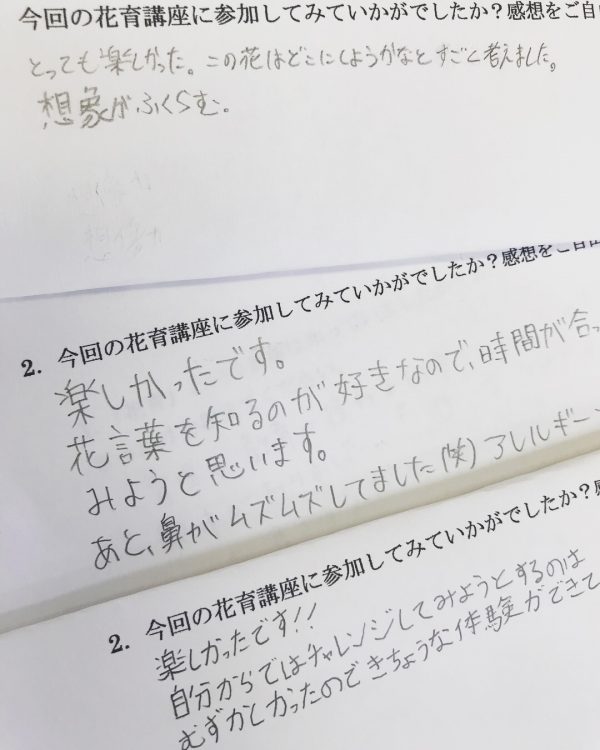 今回の花育講座に参加してみていかがでしたか？感想をご自
とっても楽しかった。この花はどこにしようかなとすごく考えました。
想象がふくらむ。
2. 今回の花育講座に参加してみていかがでしたか？感想をご自由
楽しかったです。
花言葉を知るのが好きなので、時間が合っ
みようと思います。
あと、鼻がムズムズしてました(笑)アレルギー
2. 今回の花育講座に参加してみていかがでしたか？感
楽しかったです!!
自分からではチャレンジしてみようとするのは
むずかしかったのできちょうな体験ができて